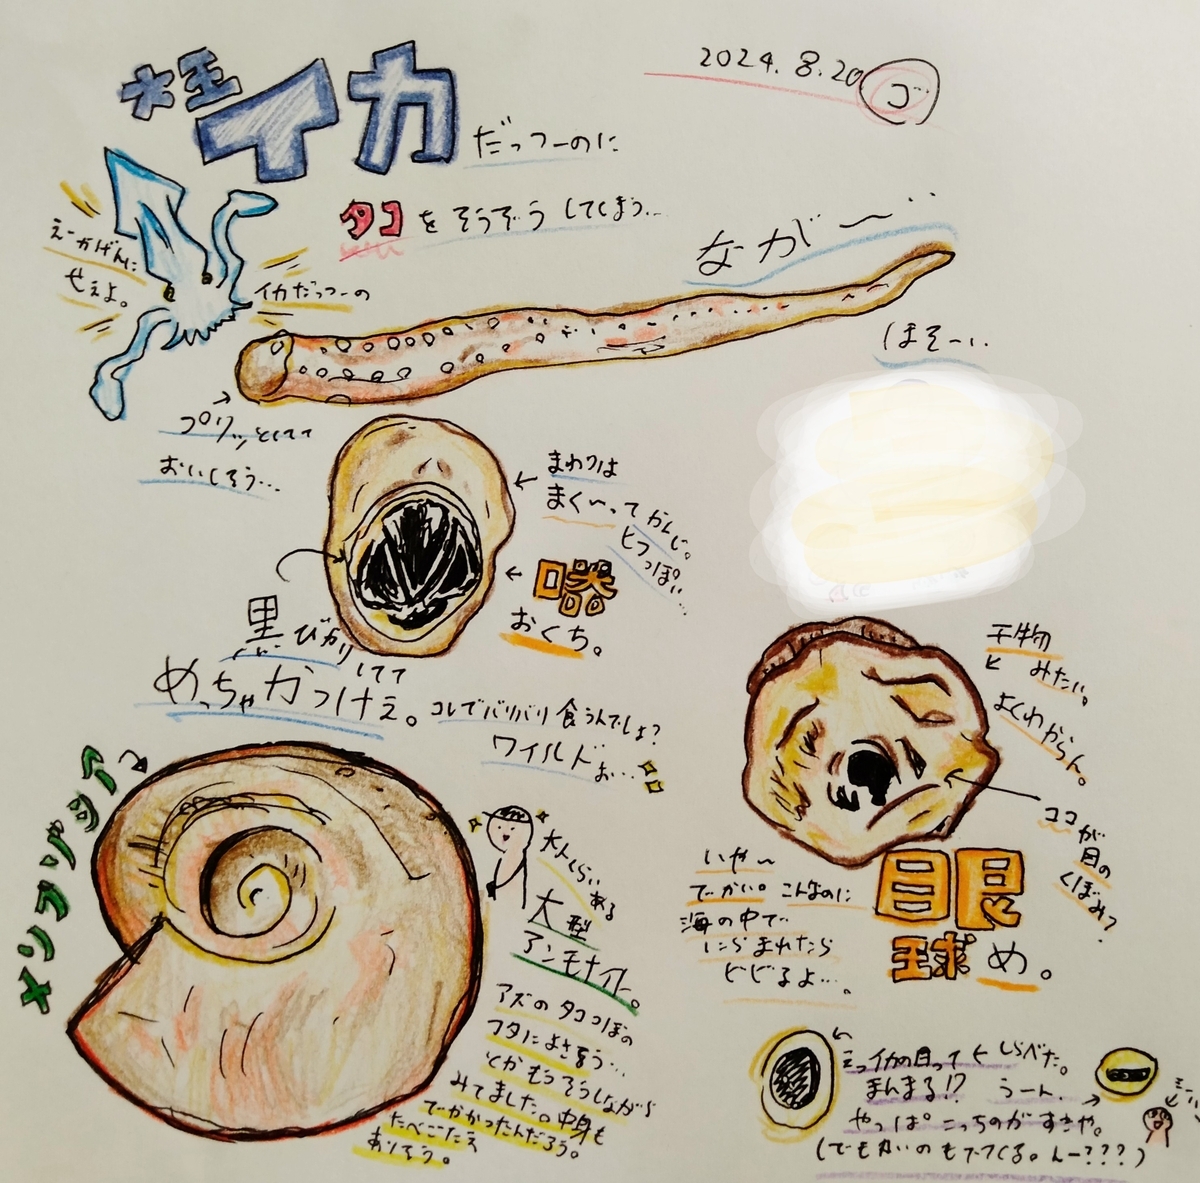 2024.8.20 ゴ
大王イカ だっつーのに
タコ を そうぞう してしまう…
えーかげんに
せぇよ。
イカだっつーの
なが〜
ほそーい
プリッとしてて
おいしそう…
まわりは
まく〜って かんじ。
ヒフっぽい…
嘴
おくち。
黒びかりしてて
めっちゃかっけぇ。
コレでバリバリ食うんでしょ?
ワイルドぉ…
干物
みたい。
よくわからん。
ココが
目の
くぼみ?
いや〜
でかい。こんなのに
海の中で
にらまれたら
どじるよ…。
眼
球 め。
メソプゾシア
大人くらい
ある
大型
アンモナイト。
アズのタコつぼの
フタによさそう…
とかもうそうしながら
みてました。中身も
でかかったんだろう。
たべごたえ
ありそう。
えっイカの目って としらべた。
まんまる!? うーん、
やっぱ こっちのが すきや。
(でも丸いのもでてくる。んー???)